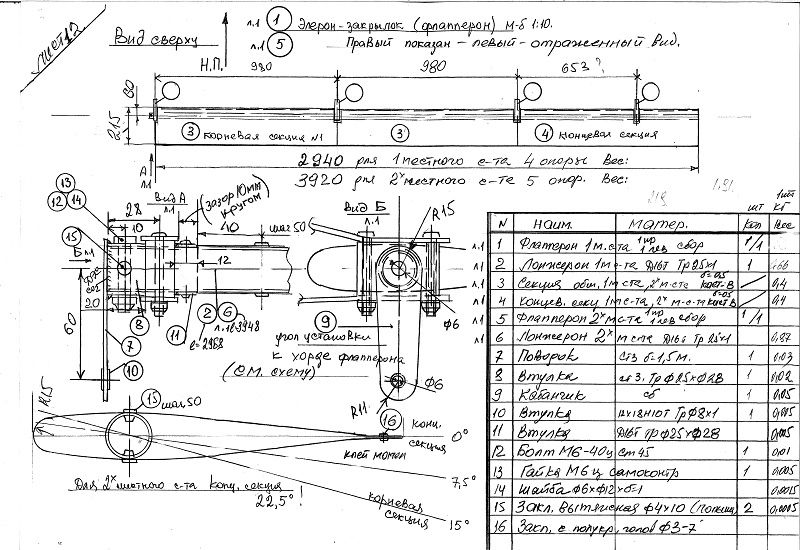 Лист 12
Вид сверху
л.1 ① Элерон-закрылок (флапперон) м-б 1:10.
л.1 ⑤ Правый показан - левый - отраженный вид.
Н.П.
980 980 653?
60
215
③ корневая секция №1 ③ ④ концевая секция
2940 для 1местного с-та 4 опоры Вес:
3920 для 2х местного с-та 5 опор. Вес:
А
л.1
13
12 14
28
Вид А
л.1
зазор 10мм
кругом
10
40
шаг 50
Вид Б
л.1
R15
15
Б л.1
12
20
60
8
2 6
л.1
11
ℓ=2968
7
10
9
угол установки
к хорде флапперона
(см. схему)
ф6
ф6
R11
R15
15 шаг 50
16
конц.
секция
0°
клей момент
7,5°
Для 2х местного с-та конц. секция
22,5° !
корневая
секция
15°
N наим. матер. шт кол 1шт кг вес
л.1 1 Флаперон 1м.с-та 1пр 1лев сбор 1/1
л.1 2 Лонжерон 1м с-та Д16Т Тр25х1
л.1 3 Секция общ. 1м с-та, 2х м с-та б=0,5 0,4
л.1 4 Концев. секц 1м с-та, 2х м-с-т б=0,5 0,4
л.1 5 Флапперон 2х м с-та 1пр 1лев сбор 1/1
л.1 6 Лонжерон 2х м с-та Д16т Тр 25х1
7 Поводок Ст3 б-1,5м. 1 1,03
8 Втулка ст 3. Тр ф25хф28 1 0,02
9 Кабанчик сб 1 0,05
10 Втулка 12х18Н10Т Тр ф8х1 1 0,005
11 Втулка Д16Т тр ф25хф28 0,005
12 Болт М6-40ц Ст 45 1 0,01
13 Гайка М6 ц самоконтр 1 0,005
14 Шайба ф6хф12хб=1 0,0015
15 Закл. вытяжная ф4х10 2 0,0015
16 Закл. с полукр. голов ф3-7